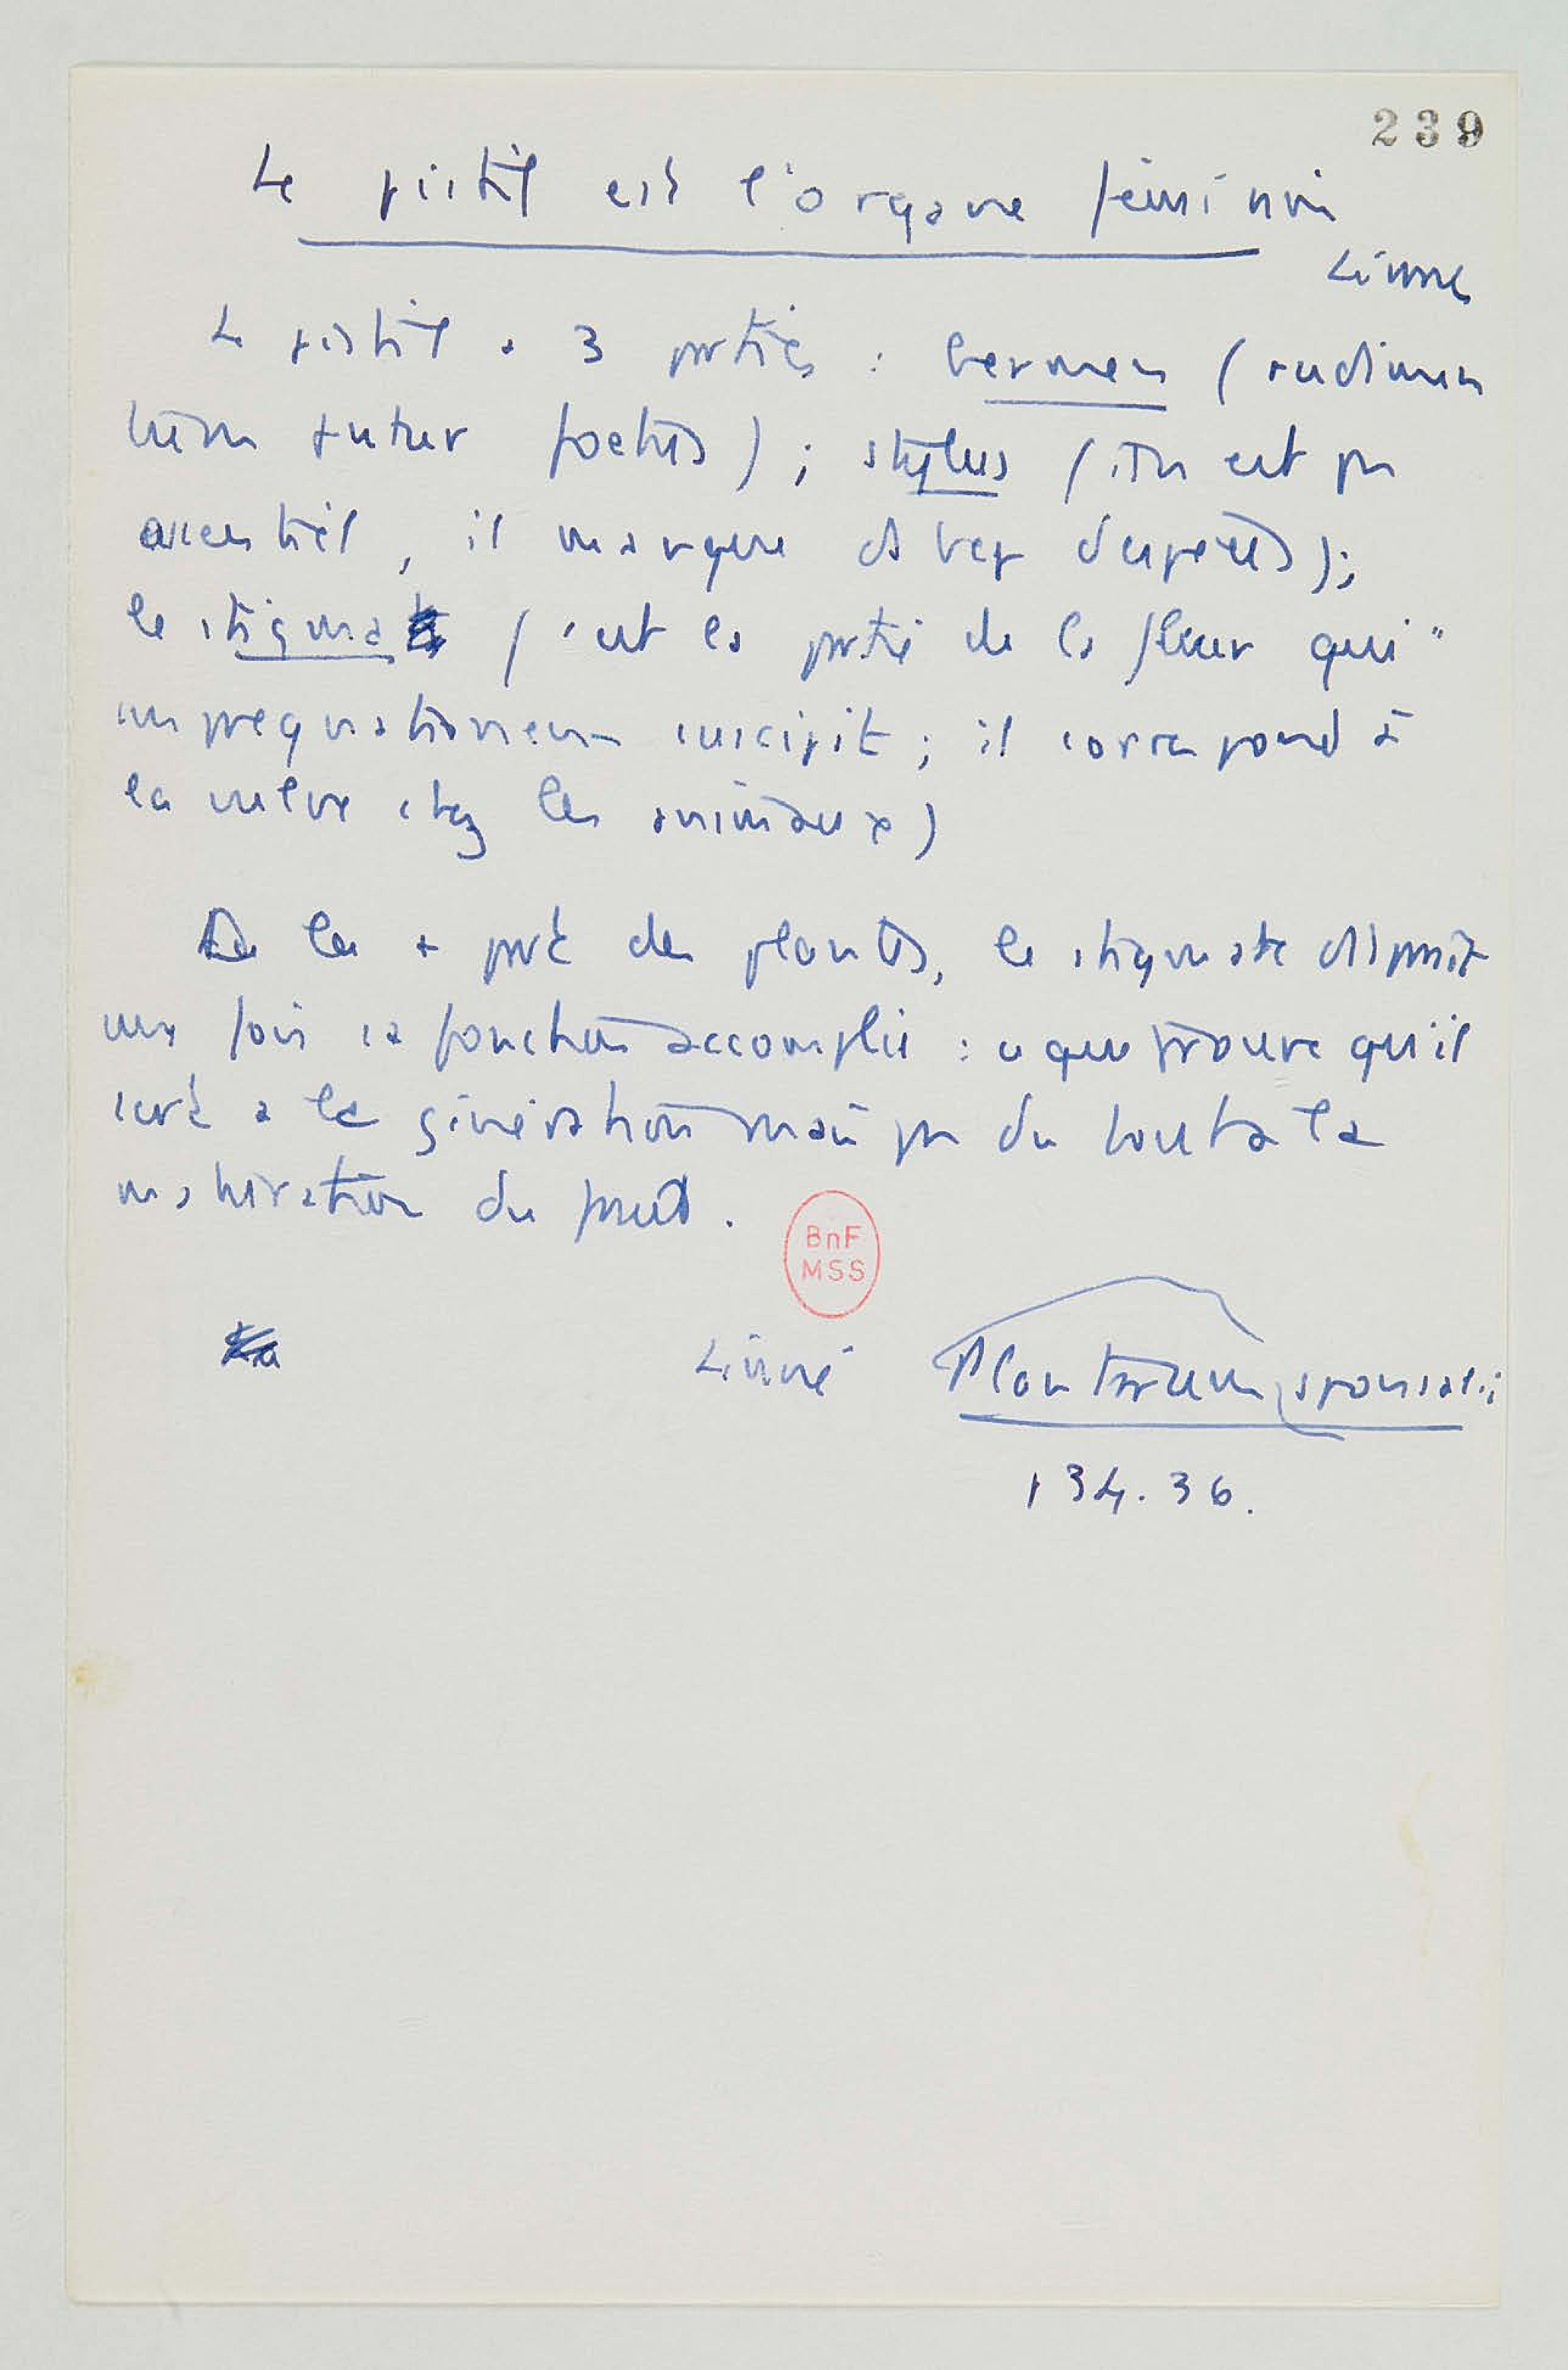 239
Le pistil est l'organe féminin
Linné
Le pistil a 3 parties : Germen (rudimen
tum futur foetus) ; stylus ( n'est pas
essentiel, il manque ds bcp d'espèces);
le stigma (c'est la partie de la fleur qui "
impregnationem suscipit ; il correspond à
la vulve chez les animaux)
Ds la + part des plantes, le stigmate disparaît
une fois sa fonction accomplie : ce que prouve qu'il
sert à la génération mais pas du tout à la
maturation du fruit.
BnF
MSS
Linné Plantarum sponsalii
134.36.